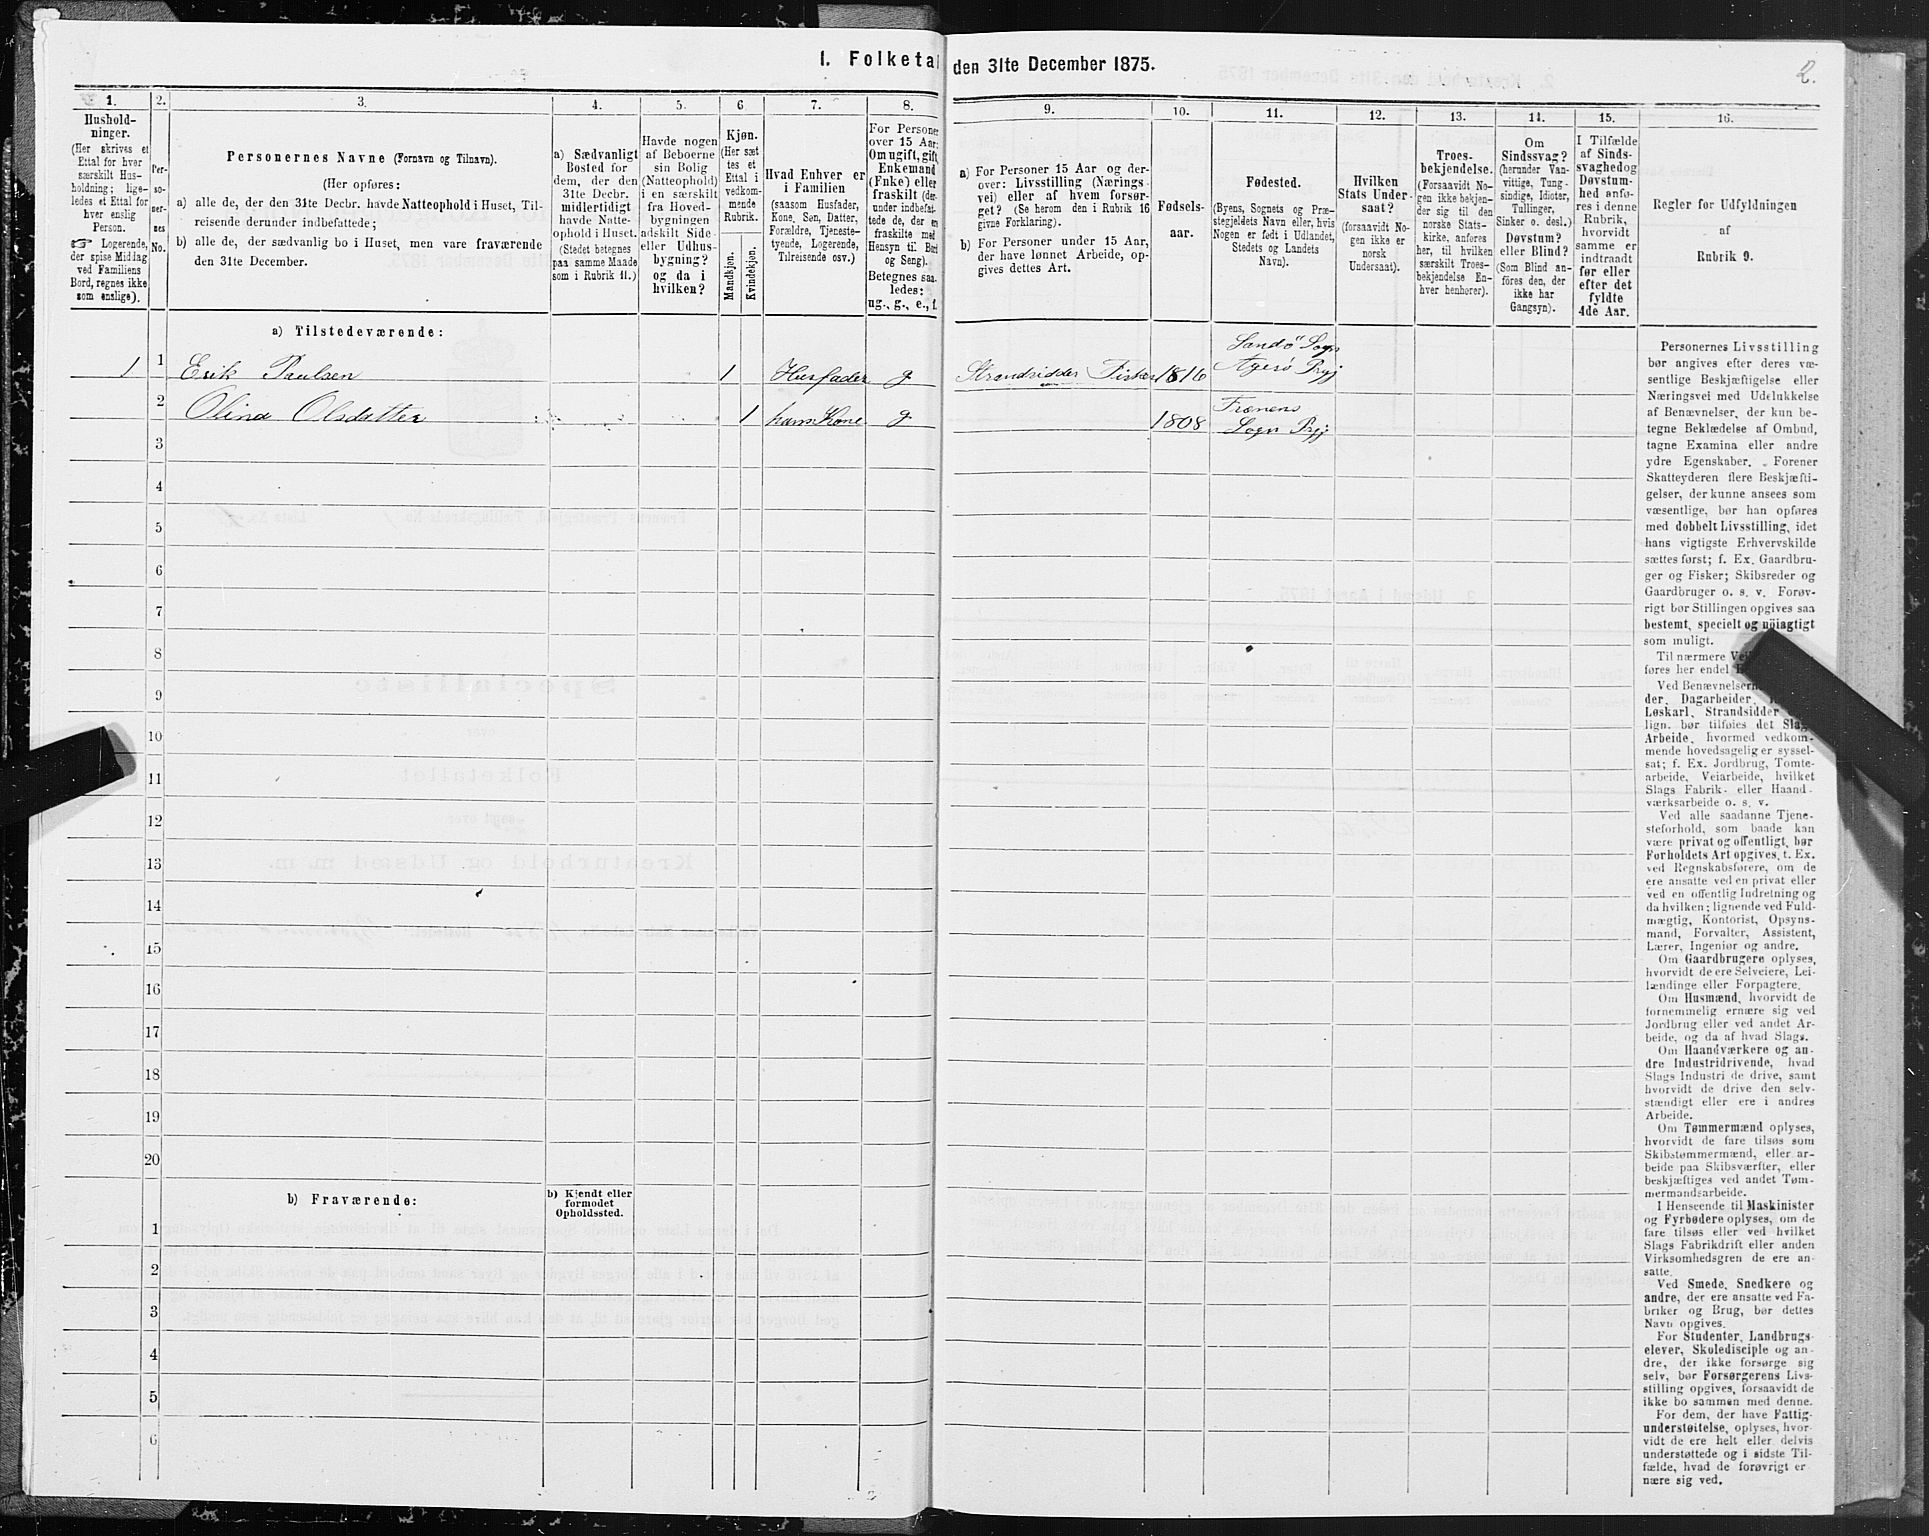 1. Folketal den 31te December 1875.
2.
1.
Hushold-
ninger.
(Her skrives et
Ettal for hver
særskilt Hus-
holdning; lige-
ledes et Ettal for
hver enslig
Person.
☞ Logerende,
der spise Middag
ved Familiens
Bord, regnes ikke
som enslige).
2.
Per-
so-
ner-
nes
No.
3.
Personernes Navne (Fornavn og Tilnavn).
(Her opføres:
a) alle de, der den 31te Decbr. havde Natteophold i Huset, Til-
reisende derunder indbefattede;
b) alle de, der sædvanlig bo i Huset, men vare fraværende
den 31te December.
4.
a) Sædvanligt
Bosted for
dem, der den
31te Decbr.
midlertidigt
havde Natte-
ophold i Huset.
(Stedet betegnes
paa samme Maade
som i Rubrik 11.)
5.
Havde nogen
af Beboerne
sin Bolig
(Natteophold)
i en særskilt
fra Hoved-
bygningen
adskilt Side-
eller Udhus-
bygning?
og da i
hvilken?
6
Kjøn.
(Her sæt-
tes et
Ettal i
vedkom-
mende
Rubrik.
Mandkjøn.
Kvindekjøn.
7.
Hvad Enhver er
i Familien
(saasom Husfader,
Kone, Søn, Datter,
Forældre, Tjeneste-
tyende, Logerende,
Tilreisende osv.)
8.
For Personer
over 15 Aar:
Om ugift, gift,
Enkemand
(Enke) eller
fraskilt (der-
under indbefat-
tede de, der en
fraskilte med
Hensyn til Bord
og Seng).
Betegnes saa-
ledes:
ug., g., e., f.
9.
a) For Personer 15 Aar og der-
over: Livsstilling (Nærings-
vei) eller af hvem forsør-
get? (Se herom den i Rubrik 16
givne Forklaring).
b) For Personer under 15 Aar,
der have lønnet Arbeide, op-
gives dettes Art.
10.
Fødsels-
aar.
11.
Fødested.
(Byens, Sognets og Præ-
stegjeldets Navn eller, hvis
Nogen er født i Udlandet,
Stedets og Landets
Navn).
12.
Hvilken
Stats Under-
saat?
(forsaavidt No-
gen ikke er
norsk
Undersaat).
13.
Troes-
bekjendelse.
(Forsaavidt No-
gen ikke bekjen-
der sig til den
norske Stats-
kirke, anføres
her, til hvilken
særskilt Troes-
bekjendelse En-
hver henhører).
14.
Om
Sindssvag?
(herunder Van-
vittige, Tung-
sindige, Idioter,
Tullinger,
Sinker o. desl.)
Døvstum?
eller Blind?
(Som Blind an-
føres den, der
ikke har
Gangsyn).
15.
I Tilfælde
af Sinds-
svaghed og
Døvstum-
hed anfø-
res i denne
Rubrik,
hvorvidt
samme er
indtraadt
før eller
efter det
fyldte
4de Aar.
16.
Regler for Udfyldningen
af
Rubrik 9.
a) Tilstedeværende:
1 1 Erik Paulsen 1 Husfader g Strandsidder Fisker 1816 Sandö Sogn
Agerö Prgj
2 Olina Olsdatter 1 hans Kone g 1808 Frænens
Sogn Prgj
3
4
5
6
7
8
9
10
11
12
13
14
15
16
17
18
19
20
b) Fraværende:
b) Kjendt eller
formodet
Opholdssted.
1
2
3
4
5
6
Personernes Livsstilling
bør angives efter deres væ-
sentlige Beskjæftigelse eller
Næringsvei med Udelukkelse
af Benævnelser, der kun be-
tegne Beklædelse af Ombud,
tagne Examina eller andre
ydre Egenskaber. Forener
Skatteyderen flere Beskjæfti-
gelser, der kunne ansees som
væsentlige, bør han opføres
med dobbelt Livsstilling, idet
hans vigtigste Erhvervskilde
sættes først; f. Ex. Gaardbru-
ger og Fisker; Skibsreder og
Gaardbruger o. s. v. Forøv-
rigt bør Stillingen opgives saa
bestemt, specielt og nøiagtigt
som muligt.
Til nærmere
føres her endel
Ved Benævnelserne
der, Dagarbeider,
Løskarl, Strandsidder
lign. bør tilføies det Slags
Arbeide, hvormed vedkom-
mende hovedsagelig er syssel-
sat; f. Ex. Jordbrug, Tomte-
arbeide, Veiarbeide, hvilket
Slags Fabrik- eller Haand-
værksarbeide o. s. v.
Ved alle saadanne Tjene-
steforhold, som baade kan
være privat og offentligt, bør
Forholdets Art opgives, t. Ex.
ved Regnskabsførere, om de
ere ansatte ved en privat eller
ved en offentlig Indretning og
da hvilken; lignende ved Fuld-
mægtig, Kontorist, Opsyns-
mand, Forvalter, Assistent,
Lærer, Ingeniør og andre.
Om Gaardbrugere oplyses,
hvorvidt de ere Selveiere, Lei-
lændinge eller Forpagtere.
Om Husmænd, hvorvidt de
fornemmelig ernære sig ved
Jordbrug eller ved andet Ar-
beide, og da af hvad Slags.
Om Haandværkere og an-
dre Industridrivende, hvad
Slags Industri de drive, samt
hvorvidt de drive den selv-
stændigt eller ere i andres
Arbeide.
Om Tømmermænd oplyses,
hvorvidt de fare tilsøs som
Skibstømmermænd, eller ar-
beide paa Skibsværfter, eller
beskjæftiges ved andet Tøm-
mermandsarbeide.
I Henseende til Maskinister
og Fyrbødere oplyses, om de
fare tilsøs eller ved hvilket
Slags Fabrikdrift eller anden
Virksomhedsgren de ere an-
satte.
Ved Smede, Snedkere og
andre, der ere ansatte ved Fa-
briker og Brug, bør dettes
Navn opgives.
For Studenter, Landbrugs-
elever, Skoledisciple og an-
dre, der ikke forsørge sig
selv, bør Forsørgerens Livs-
stilling opgives, forsaavidt de
ikke bo sammen med denne.
For dem, der have Fattig-
understøttelse, oplyses, hvor-
vidt de ere helt eller delvis
understøttede og i sidste Til-
fælde, hvad de forøvrigt er-
nære sig ved.